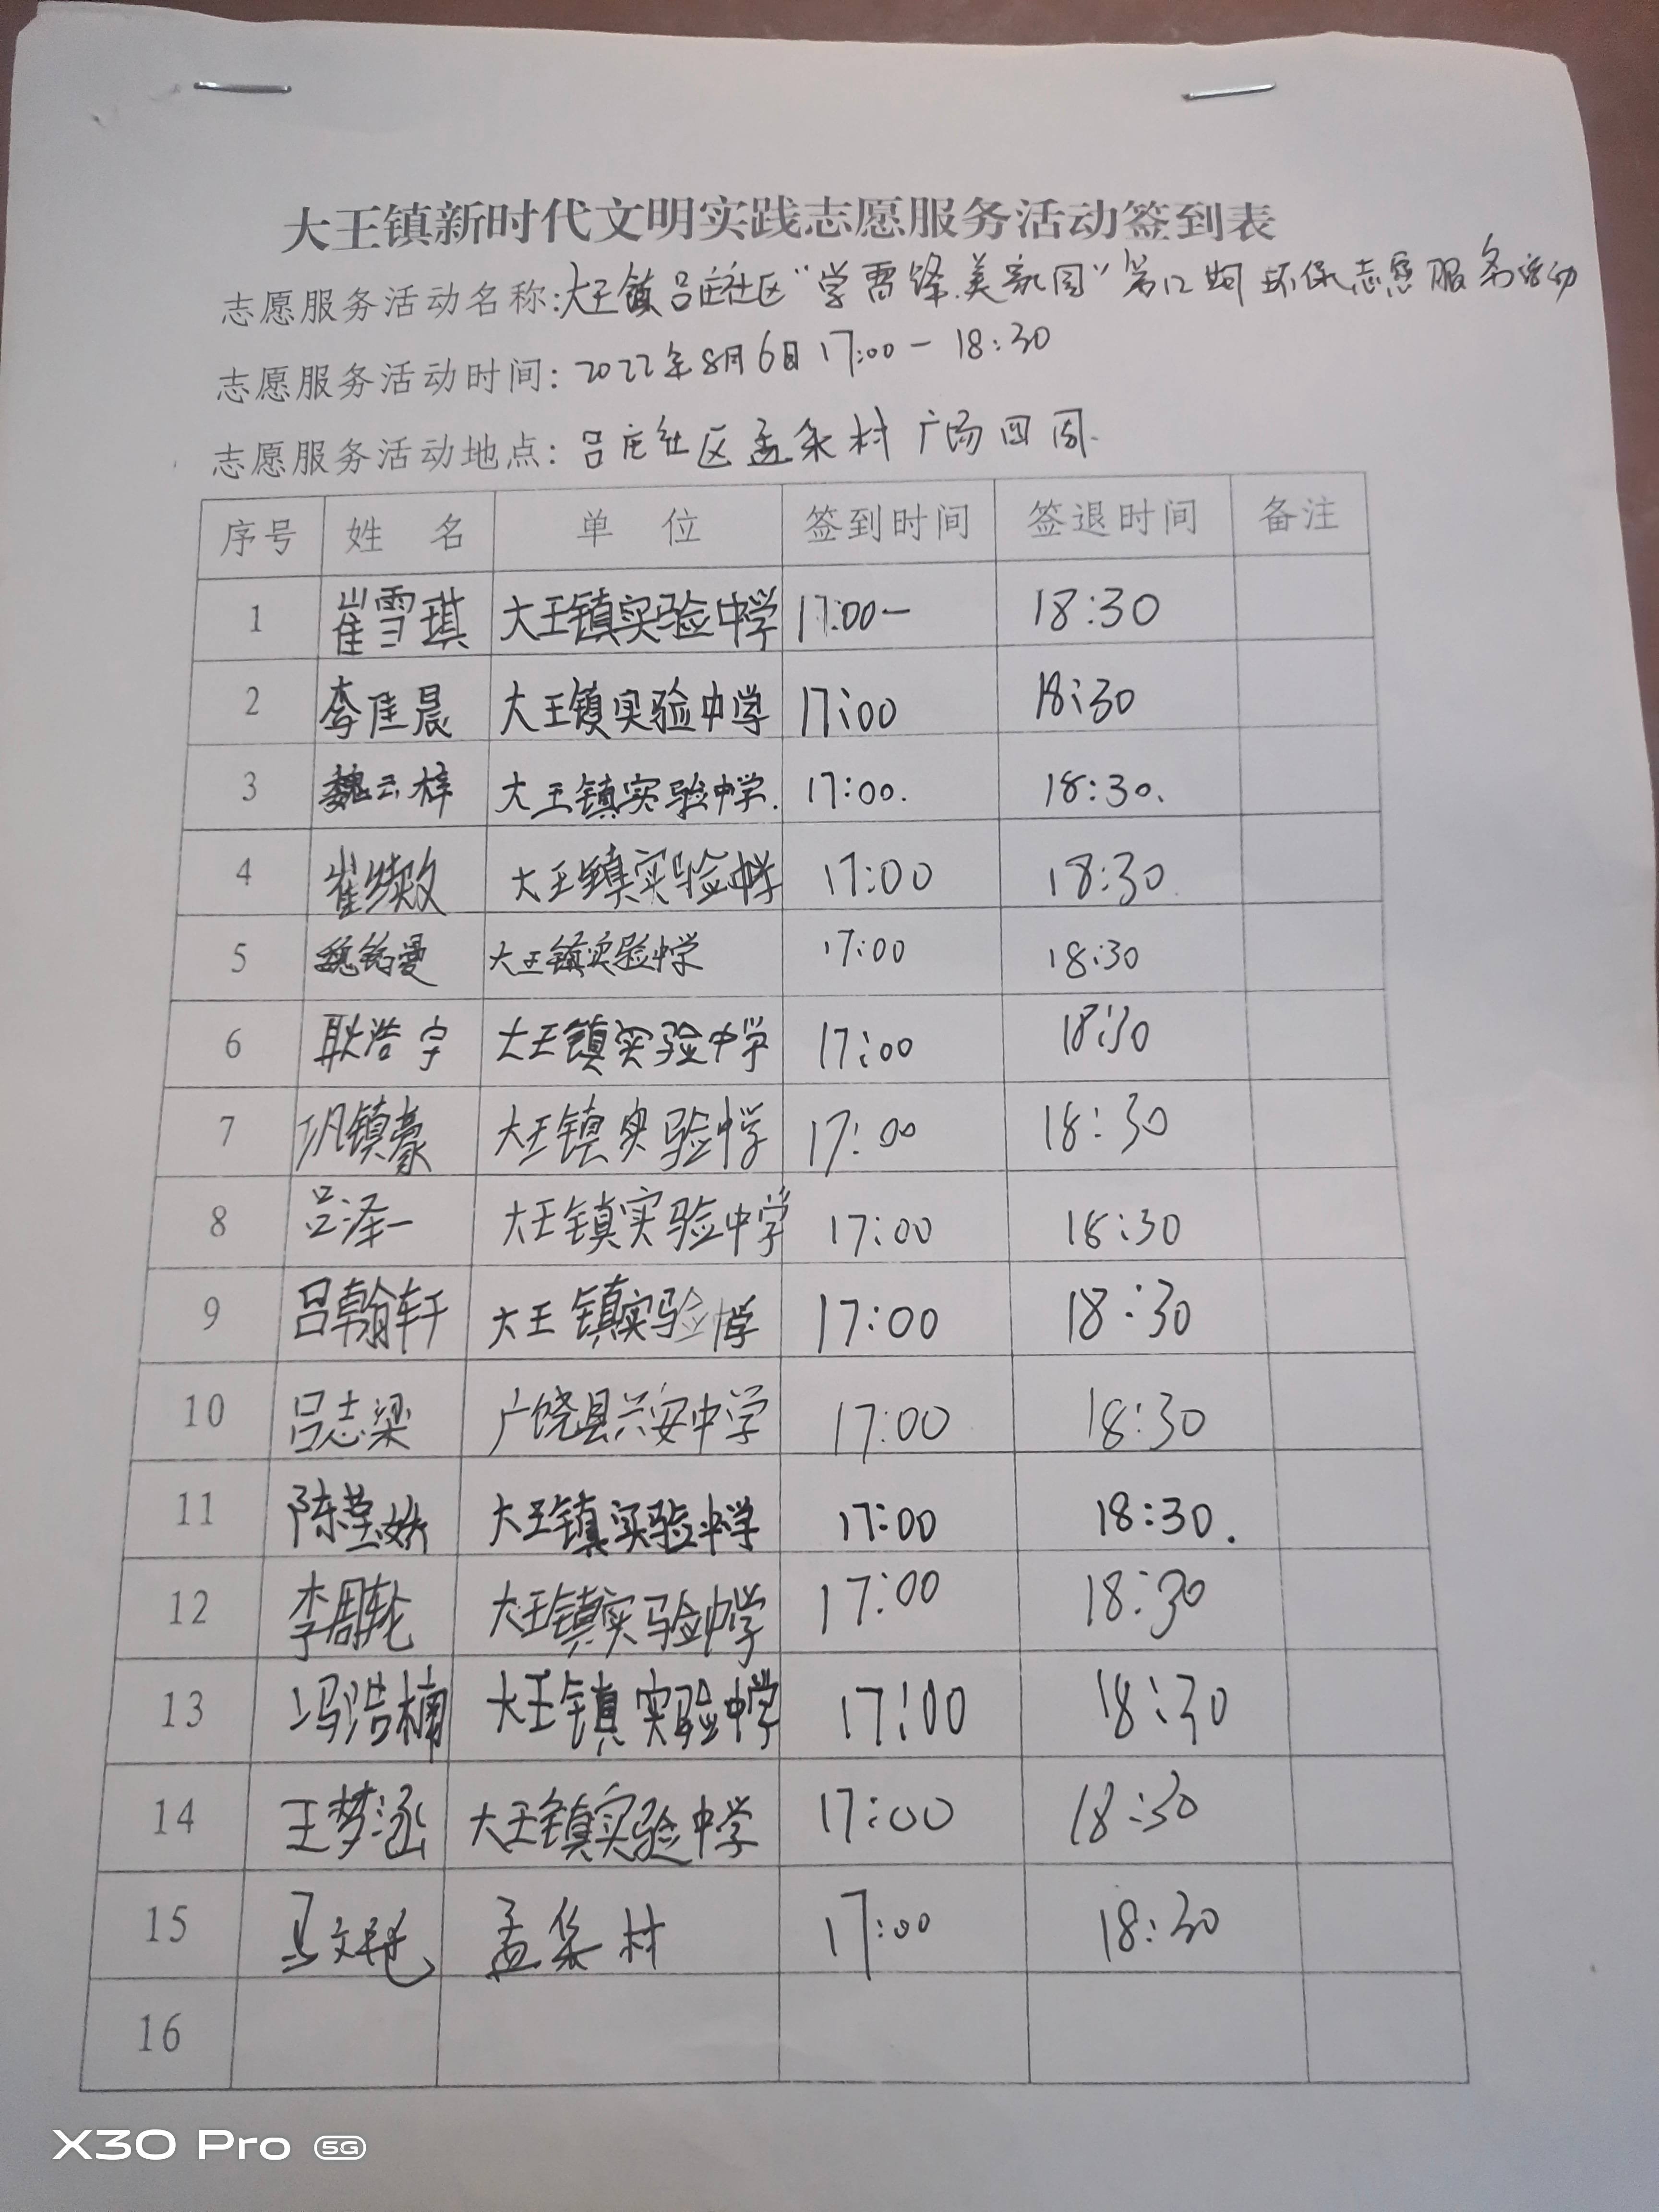 大王镇新时代文明实践志愿服务活动签到表
志愿服务活动名称:大王镇吕庄社区“学雷锋.美家园”第12期环保志愿服务活动
志愿服务活动时间: 2022年8月6日17:00-18:30
志愿服务活动地点: 吕庄社区孟集村广场四周.
序号 姓 名 单 位 签到时间 签退时间 备注
1 崔雪琪 大王镇实验中学 17:00- 18:30
2 李佳晨 大王镇实验中学 17:00 18:30
3 魏云梓 大王镇实验中学. 17:00. 18:30.
4 崔 大王镇实验中学 17:00 18:30
5 魏铭曼 大王镇实验中学 17:00 18:30
6 耿浩宇 大王镇实验中学 17:00 18:30
7 巩镇豪 大王镇实验中学 17:00 18:30
8 吕泽一 大王镇实验中学 17:00 18:30
9 吕翰轩 大王镇实验中学 17:00 18:30
10 吕志梁 广饶县兴安中学 17:00 18:30
11 陈莹娇 大王镇实验中学 17:00 18:30.
12 李周轮 大王镇实验中学 17:00 18:30
13 冯浩楠 大王镇实验中学 17:00 18:30
14 王梦涵 大王镇实验中学 17:00 18:30
15 马文 孟集村 17:00 18:30
16
X30 Pro 5G